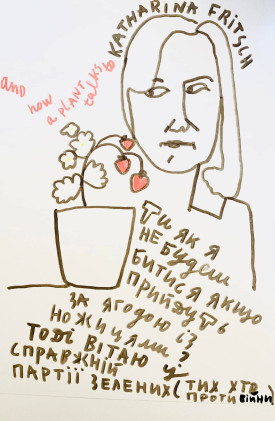 KATHARINA FRITSCH
AND
how
a PLANT
talks to
ТИ ЯК Я
НЕ БУДЕШ
БИТИСЯ ЯКЩО
ПРИЙДУТЬ
ЗА ЯГОДОЮ ІЗ
НОЖИЦЯМИ?
ТОДІ ВІТАЮ У
СПРАВЖНІЙ
ПАРТІЇ ЗЕЛЕНИХ (ТИХ ХТО
ПРОТИ ВІЙНИ)